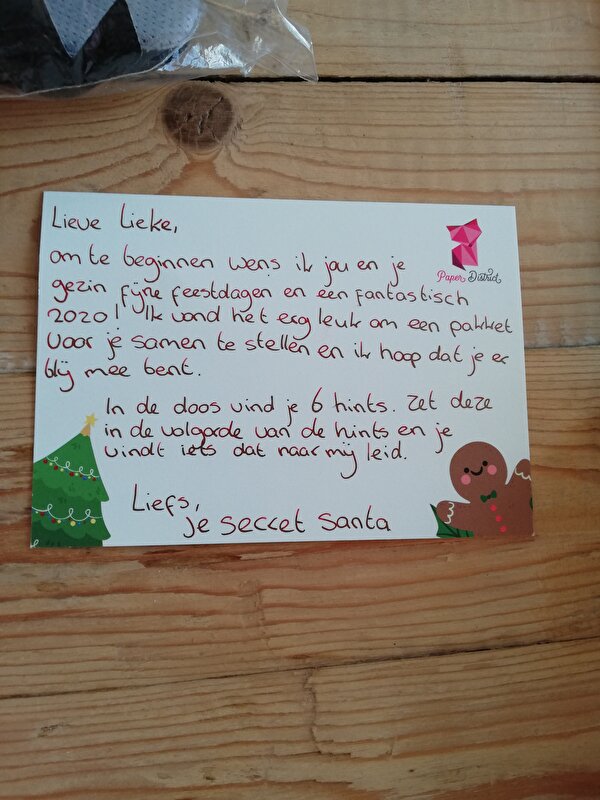 Lieve Lieke,
Paper District
om te beginnen wens ik jou en je
gezin fijne feestdagen en een fantastisch
2020! Ik vond het erg leuk om een pakket
voor je samen te stellen en ik hoop dat je er
blij mee bent.
In de doos vind je 6 hints. Zet deze
in de volgorde van de hints en je
vindt iets dat naar mij leid.
Liefs,
je secret Santa